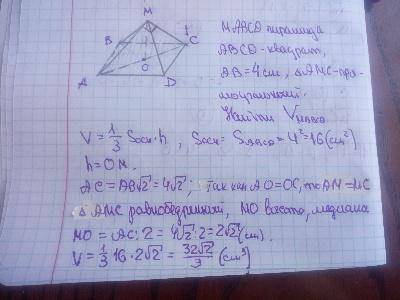 M
B
C
A
D
O
MABCD пирамида
ABCD - квадрат,
AB = 4 см, △AMC - пря-
моугольный.
Найти V
V = 1/3 Sосн · h, Sосн = SABCD = 4² = 16 (см²)
h = OM.
AC = AB√2 = 4√2; Так как AO = OC, то AM = MC
△AMC равнобедренный, MO высота, медиана
MO = AC : 2 = 4√2 : 2 = 2√2 (см).
V = 1/3 16 · 2√2 = 32√2/3 (см³)